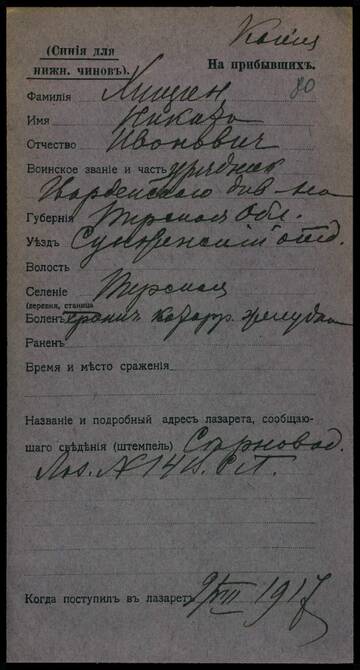 Копия
(Синія для
нижн. чиновъ).
На прибывшихъ.
80
Фамилія Мищен
Имя Никаѳо
Отчество Ивонович
Воинское званіе и часть урядник
Гвардейскаго див-на
Губернія Терская Обл.
Уѣздъ Сунженскій отд.
Волость
Селеніе Терская
(деревня, станица)
Боленъ хронич. катарр. желудка
Раненъ
Время и мѣсто сраженія
Названіе и подробный адресъ лазарета, сообщаю-
щаго свѣдѣнія (штемпель) Сѣрновод.
Лаз. N 14
Когда поступилъ въ лазаретъ 9/VII 1917